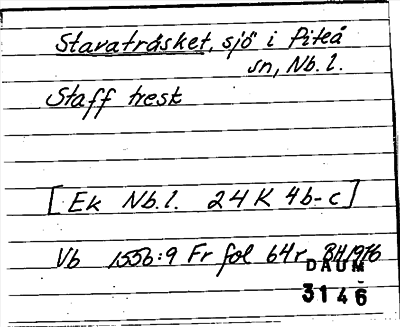 Stavaträsket, sjö i Piteå
sn, Nb.l.
Staff tresk
[Ek Nb.l. 24K 4b-c]
Vb 1556:9 Fr fol 64r BH1976
DAUM
3146